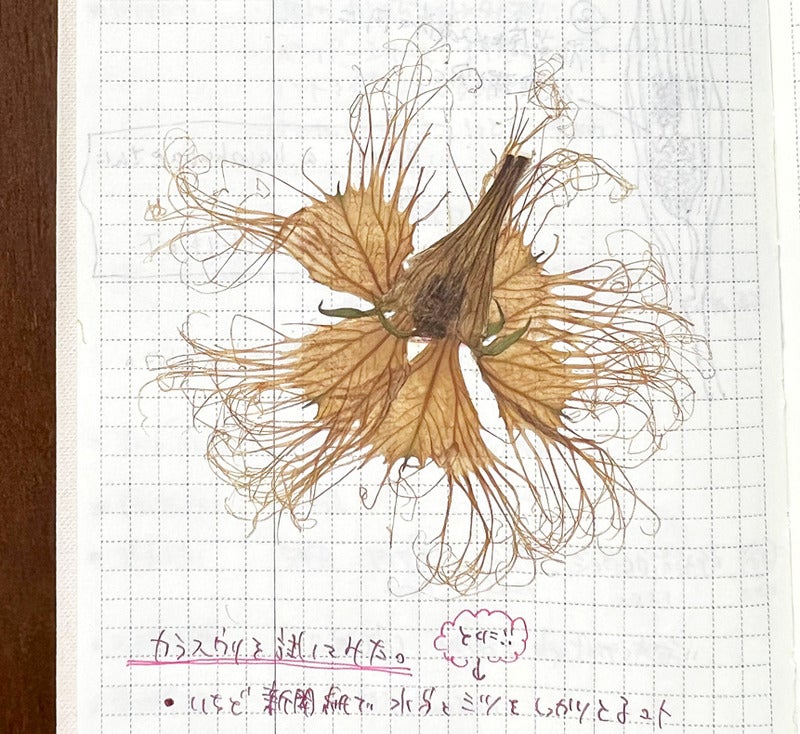 カラスウリを試してみた。
• いちど新聞紙で水分とミツをしっかりとるコト